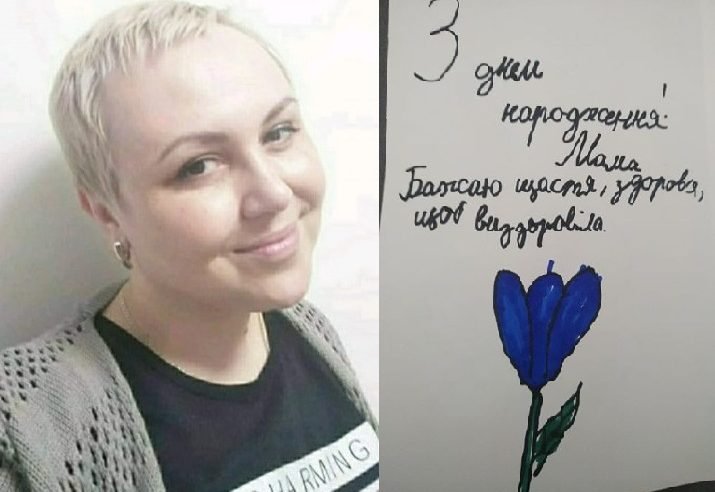 HARMING
З днем
народження!
Мама
Бажаю щастя, здоровя,
щоб виздоровіла.